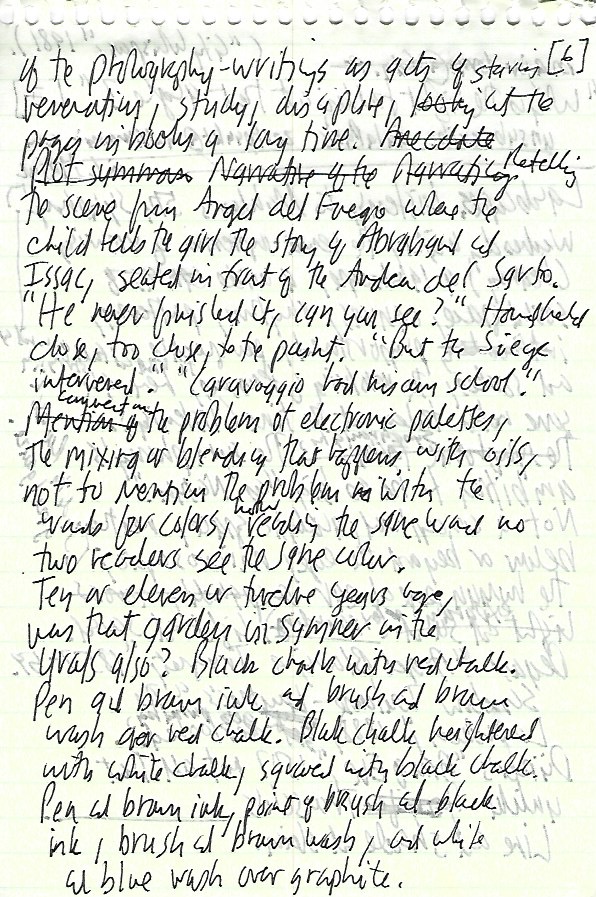 of the photography-writings as acts of staring [6]
veneration, study, discipline, looking at the
pages in books a long time. Anecdote
Plot summary Narrative of the Narrating Retelling
the scene from Angel del Fuego where the
child tells the girl the story of Abraham and
Isaac, seated in front of the Andrea del Sarto.
"He never finished it, can you see?" Handheld
close, too close, to the paint. "But the Siege
intervened." "Caravaggio had his own school."
Mention of comment on the problem of electronic palettes,
the mixing or blending that happens with oils,
not to mention the problem with the
words for colors, how reading the same word no
two readers see the same color.
Ten or eleven or twelve years ago,
was that garden in summer in the
Urals also? Black chalk with red chalk.
Pen and brown ink and brush and brown
wash over red chalk. Black chalk heightened
with white chalk, squared with black chalk.
Pen and brown ink, point of brush and black
ink, brush and brown wash, and white
and blue wash over graphite.